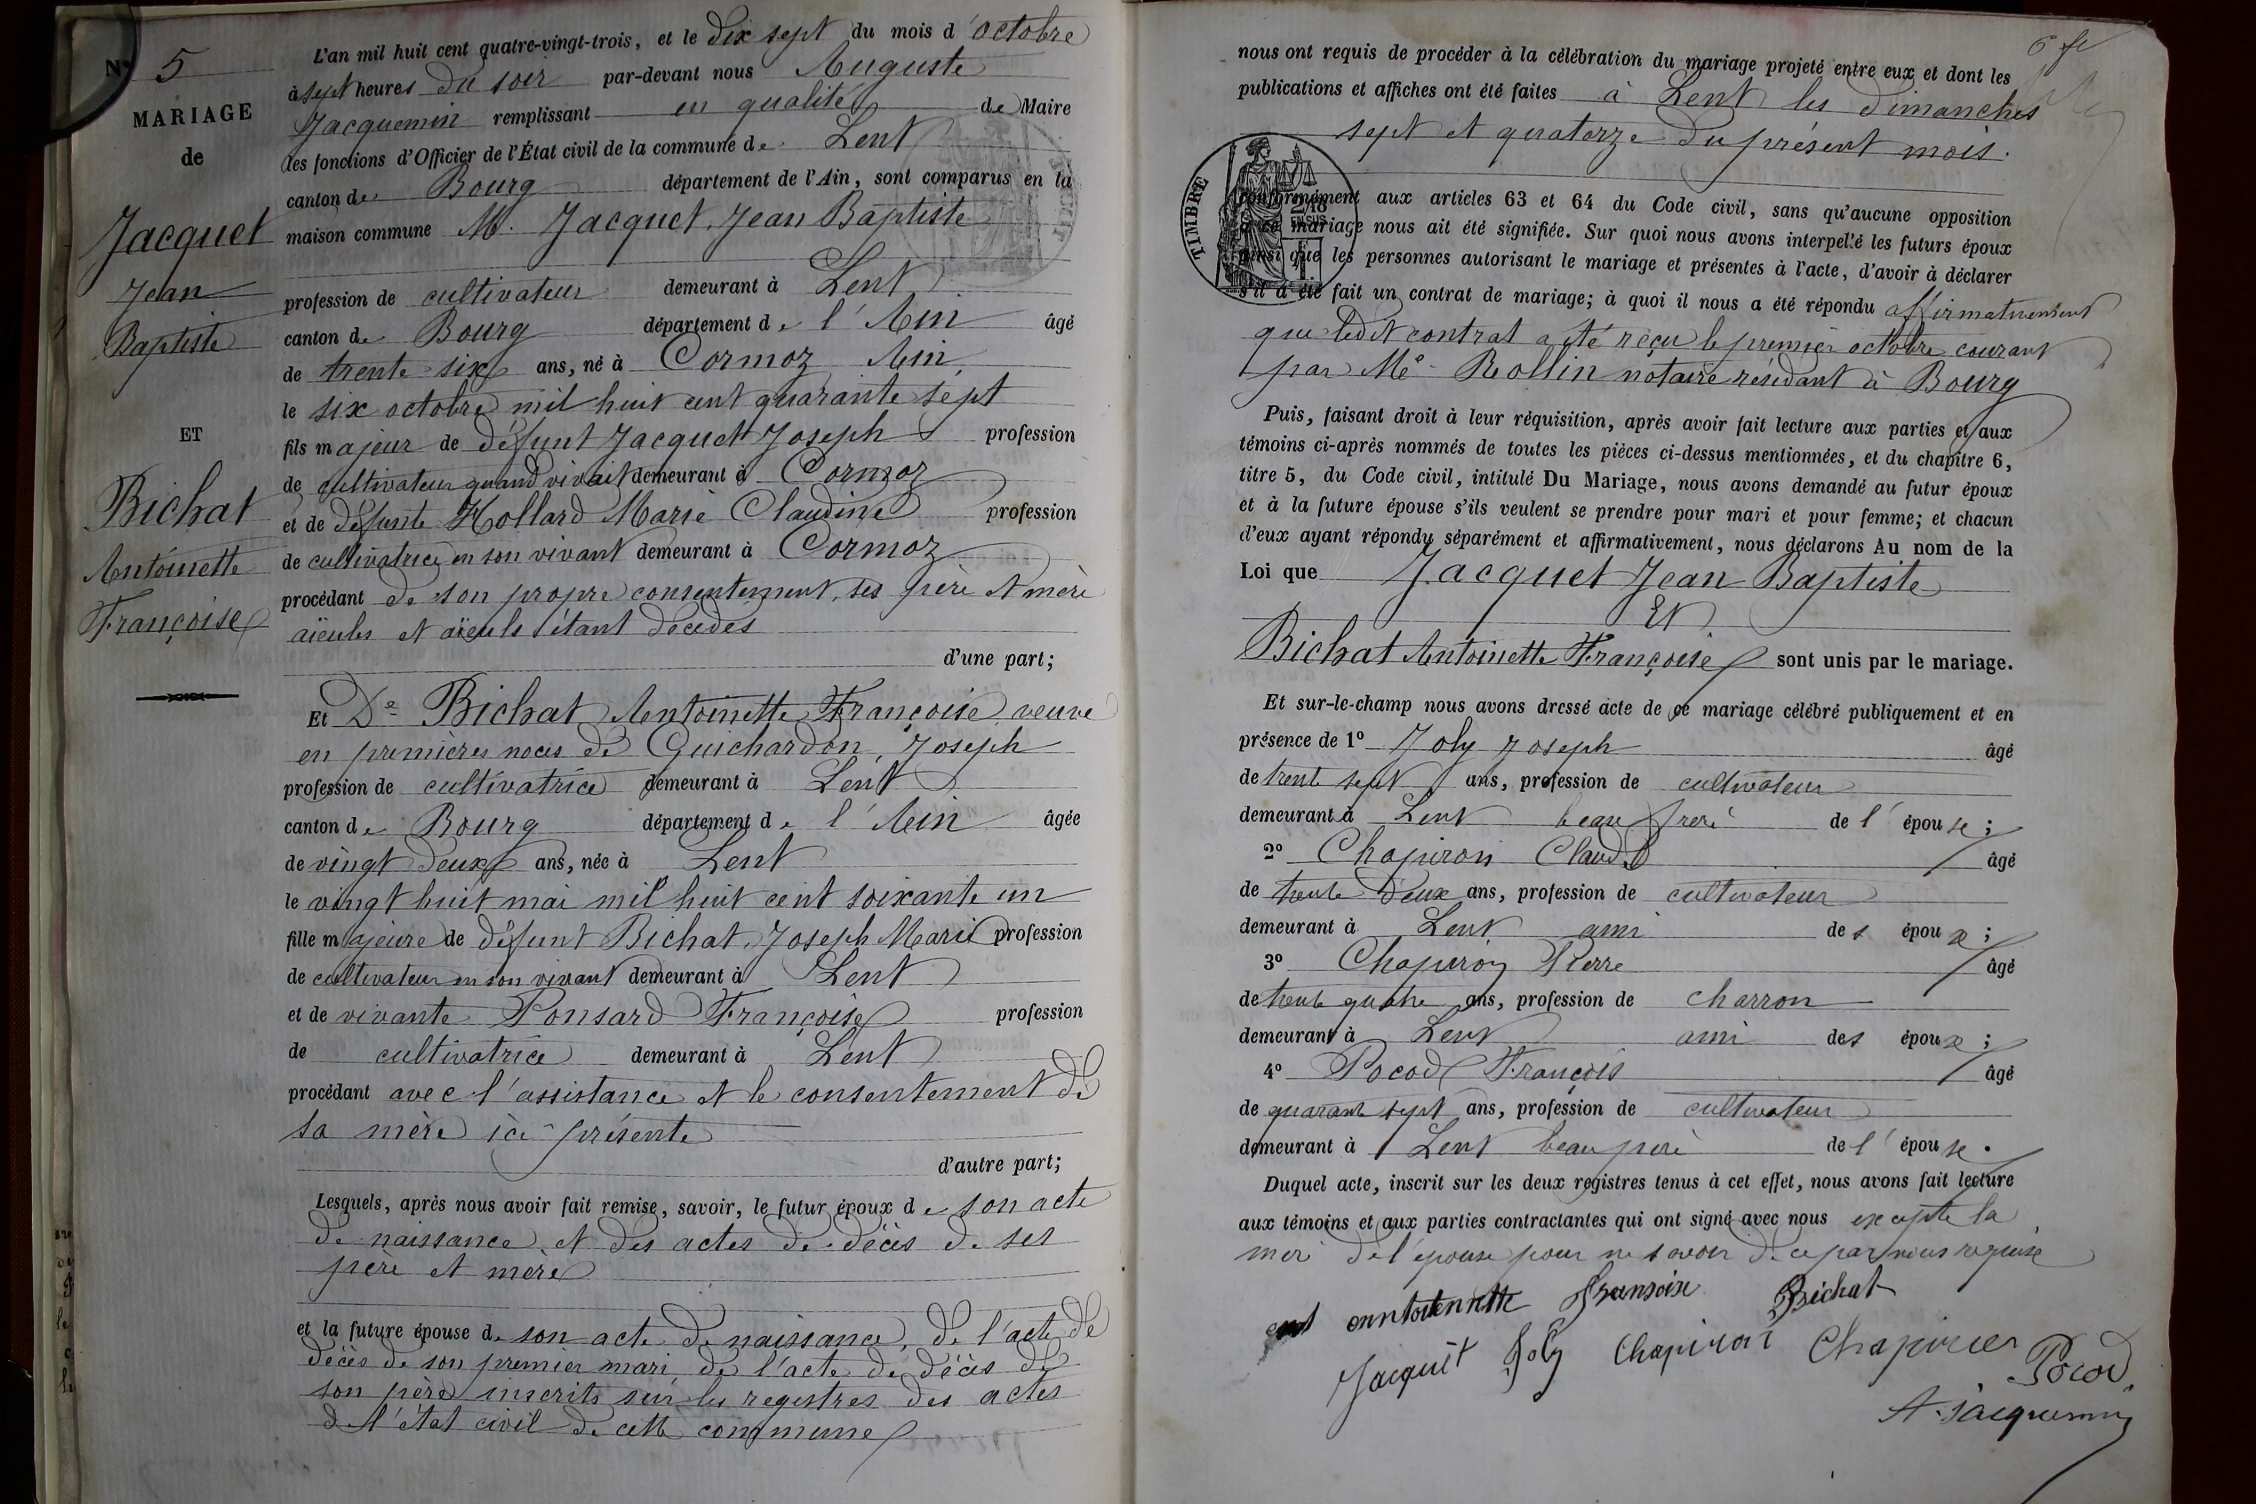 N° 5
MARIAGE
de
Jacquet
Jean
Baptiste
ET
Bichat
Antoinette
Françoise
L'an mil huit cent quatre-vingt-trois, et le dix sept du mois d'octobre
à sept heures du soir par-devant nous Auguste
Jacquemin remplissant en qualité de Maire
les fonctions d'Officier de l'État civil de la commune de Lent
canton de Bourg département de l'Ain, sont comparus en la
maison commune M. Jacquet, Jean Baptiste
profession de cultivateur demeurant à Lent
canton de Bourg département de l'Ain âgé
de trente six ans, né à Cormoz Ain,
le six octobre mil huit cent quarante sept
fils majeur de défunt Jacquet Joseph profession
de cultivateur quand vivait demeurant à Cormoz
et de défunte Hollard Marie Claudine profession
de cultivatrice en son vivant demeurant à Cormoz
procédant de son propre consentement, ses père et mère
aïeules et aïeuls étant décédés
d'une part;
Et De Bichat Antoinette Françoise, veuve
en premières noces de Guichardon, Joseph
profession de cultivatrice demeurant à Lent
canton de Bourg département de l'Ain âgée
de vingt deux ans, née à Lent
le vingt huit mai mil huit cent soixante un
fille majeure de défunt Bichat, Joseph Marie profession
de cultivateur en son vivant demeurant à Lent
et de vivante Ponsard Françoise profession
de cultivatrice demeurant à Lent
procédant avec l'assistance et le consentement de
sa mère ici présente
d'autre part;
Lesquels, après nous avoir fait remise, savoir, le futur époux de son acte
de naissance, et des actes de décès de ses
père et mère
et la future épouse de son acte de naissance, de l'acte de
décès de son premier mari, de l'acte de décès de
son père inscrits sur les registres des actes
de l'état civil de cette commune
6 fe
nous ont requis de procéder à la célébration du mariage projeté entre eux et dont les
publications et affiches ont été faites à Lent les dimanches
sept et quatorze du présent mois.
TIMBRE
2/10
EN SUS
conformément aux articles 63 et 64 du Code civil, sans qu'aucune opposition
à ce mariage nous ait été signifiée. Sur quoi nous avons interpellé les futurs époux
ainsi que les personnes autorisant le mariage et présentes à l'acte, d'avoir à déclarer
s'il a été fait un contrat de mariage; à quoi il nous a été répondu affirmativement
que ledit contrat a été reçu le premier octobre courant
par Me Rollin notaire résidant à Bourg
Puis, faisant droit à leur réquisition, après avoir fait lecture aux parties et aux
témoins ci-après nommés de toutes les pièces ci-dessus mentionnées, et du chapitre 6,
titre 5, du Code civil, intitulé Du Mariage, nous avons demandé au futur époux
et à la future épouse s'ils veulent se prendre pour mari et pour femme; et chacun
d'eux ayant répondu séparément et affirmativement, nous déclarons Au nom de la
Loi que Jacquet Jean Baptiste
Et
Bichat Antoinette Françoise sont unis par le mariage.
Et sur-le-champ nous avons dressé acte de ce mariage célébré publiquement et en
présence de 1° Joly Joseph âgé
de trente sept ans, profession de cultivateur
demeurant à Lent beau frère de l'épouse;
2° Chapiron Claude âgé
de trente deux ans, profession de cultivateur
demeurant à Lent ami des époux;
3° Chapiron Pierre âgé
de trente quatre ans, profession de charron
demeurant à Lent ami des époux;
4° Pocod François âgé
de quarante sept ans, profession de cultivateur
demeurant à Lent beau père de l'épouse.
Duquel acte, inscrit sur les deux registres tenus à cet effet, nous avons fait lecture
aux témoins et aux parties contractantes qui ont signé avec nous excepté la
mère de l'épouse pour ne savoir de ce par nous requise
anntoitennette Fransoise Bichat
Jacquet Joly Chapiron Chapiron Pocod
A. Jacquemin